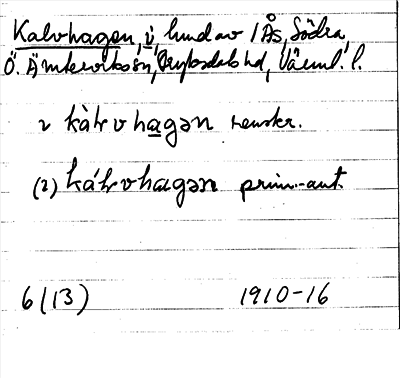 Kalvhagen, i, hund av 1 Ås, Södra,
Ö. Ämterviks sn, Fryksdals hd, Värml. l.
2 kàlv hagən renskr.
(2) kálvhagən prim.-ant.
6 (13) 1910-16